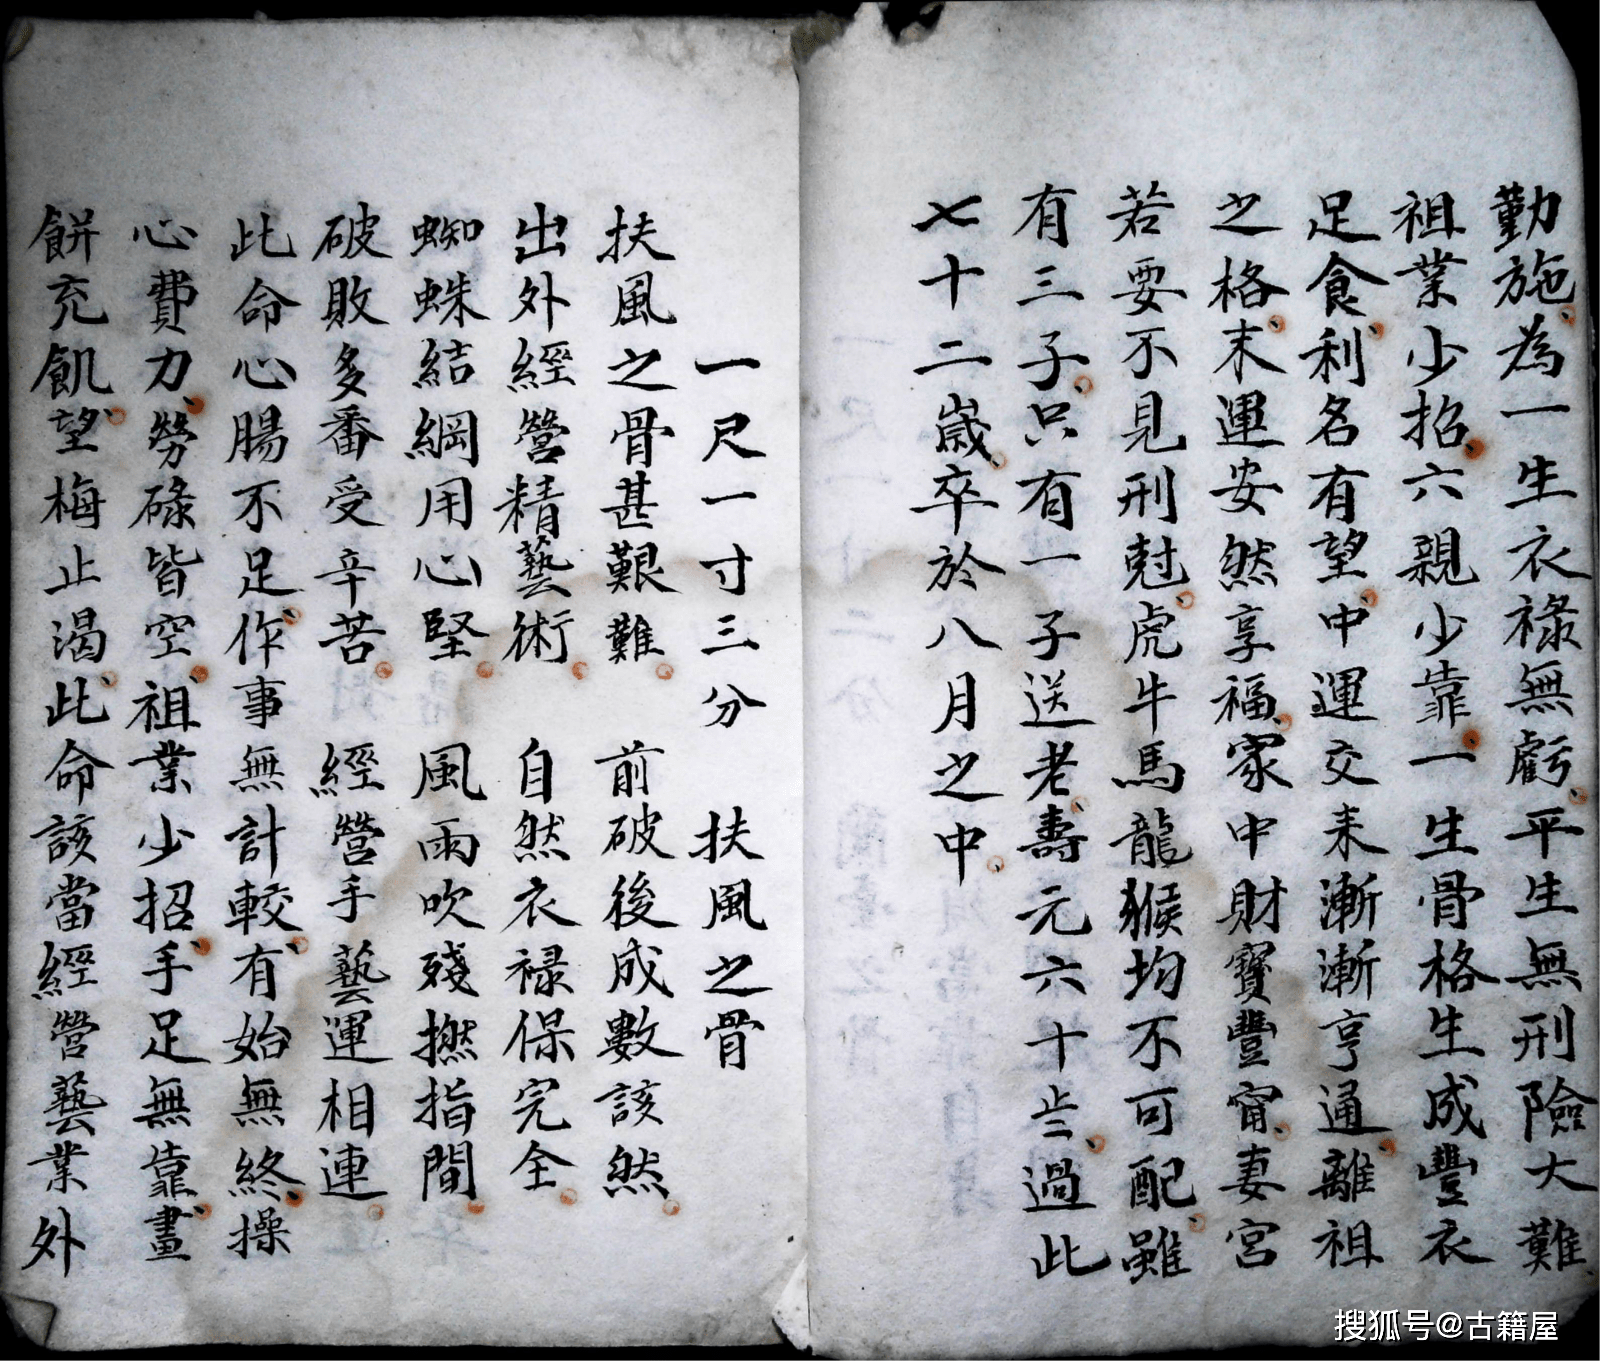 勤施為一生衣祿無虧平生無刑險大難
祖業少招六親少靠一生骨格生成豐衣
足食利名有望中運交來漸漸亨通離祖
之格末運安然享福家中財寶豐甯妻宮
若要不見刑尅虎牛馬龍猴均不可配雖
有三子只有一子送老壽元六十些過此
七十二歲卒於八月之中
一尺一寸三分 扶風之骨
扶風之骨甚艱難 前破後成數該然
出外經營精藝術 自然衣祿保完全
蜘蛛結網用心堅 風雨吹殘撚指間
破敗多番受辛苦 經營手藝運相連
此命心腸不足作事無計較有始無終操
心費力勞碌皆空祖業少招手足無靠畫
餅充飢望梅止渴此命該當經營藝業外
搜狐号@古籍屋